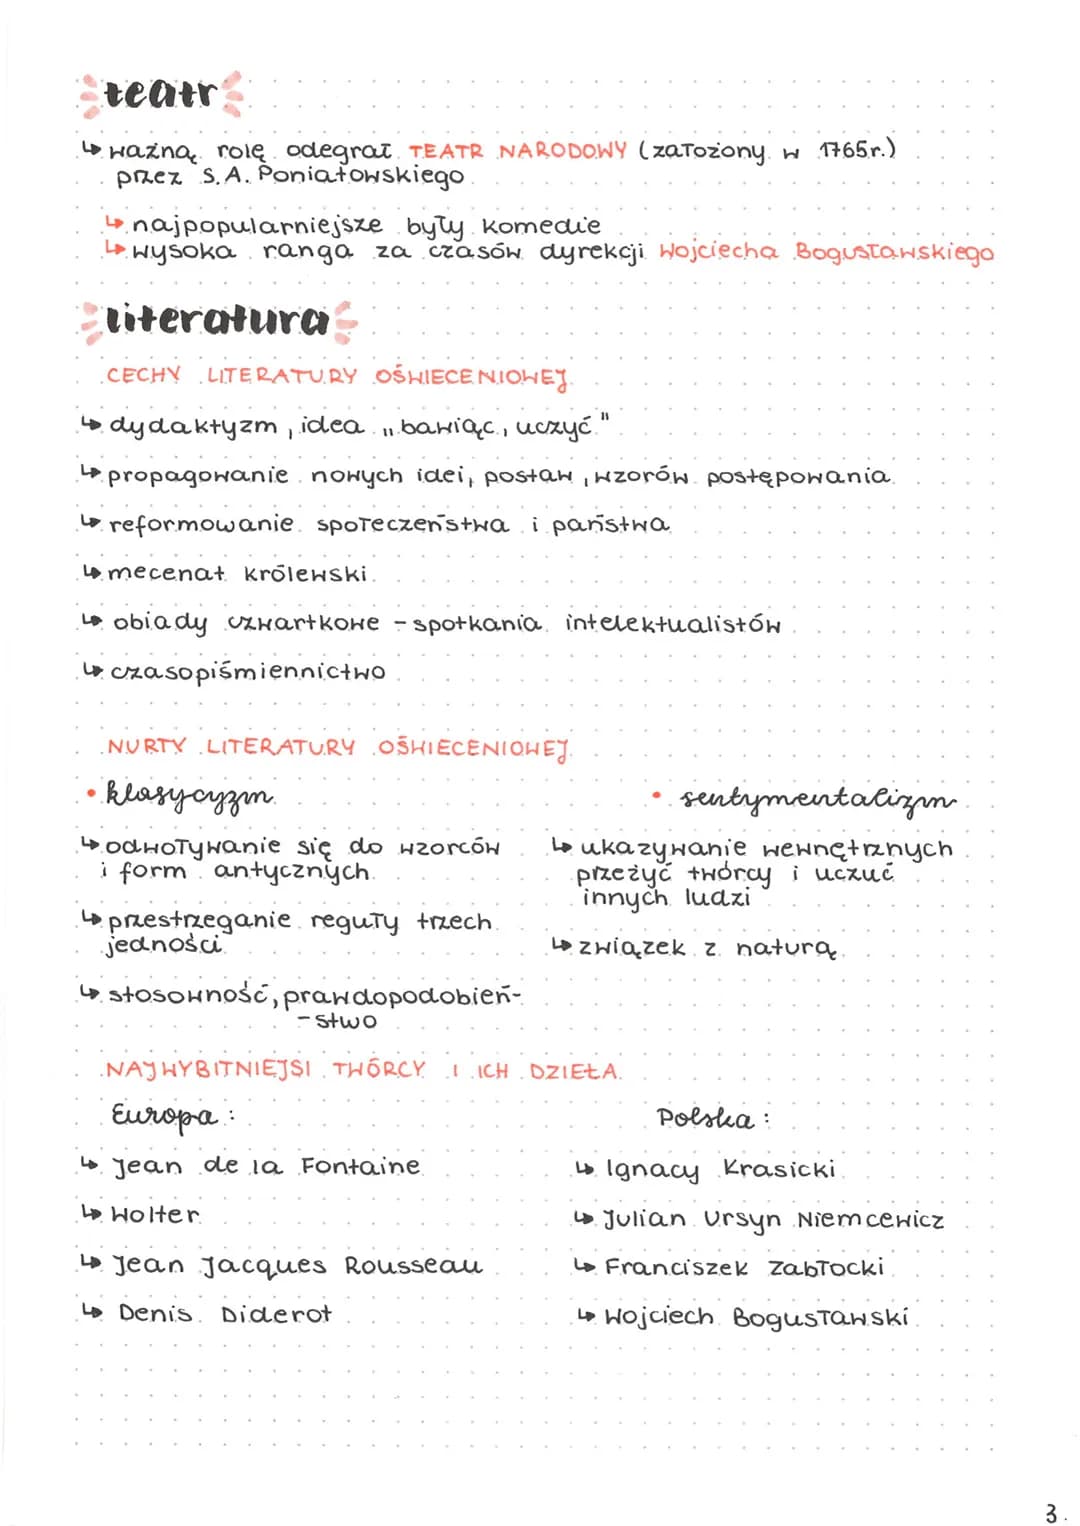 teatr
↳ ważną rolę odegrał TEATR NARODOWY (założony w 1765r.)
przez S.A. Poniatowskiego
↳ najpopularniejsze były komedie
↳ wysoka ranga za czasów dyrekcji Wojciecha Bogusławskiego
literatura
CECHY LITERATURY OŚWIECENIOWEJ
↳ dydaktyzm, idea „bawiąc, uczyć"
↳ propagowanie nowych idei, postaw, wzorów postępowania
↳ reformowanie społeczeństwa i państwa
↳ mecenat królewski
↳ obiady czwartkowe - spotkania intelektualistów
↳ czasopiśmiennictwo
NURTY LITERATURY OŚWIECENIOWEJ
• klasycyzm
↳ odwoływanie się do wzorców
i form antycznych
↳ przestrzeganie reguły trzech
jedności
↳ stosowność, prawdopodobień-
-stwo
• sentymentalizm
↳ ukazywanie wewnętrznych
przeżyć twórcy i uczuć
innych ludzi
↳ związek z naturą
NAJWYBITNIEJSI TWÓRCY I ICH DZIEŁA
Europa:
↳ Jean de la Fontaine
↳ Wolter
↳ Jean Jacques Rousseau
↳ Denis Diderot
Polska:
↳ Ignacy Krasicki
↳ Julian Ursyn Niemcewicz
↳ Franciszek Zabłocki
↳ Wojciech Bogusławski
3.